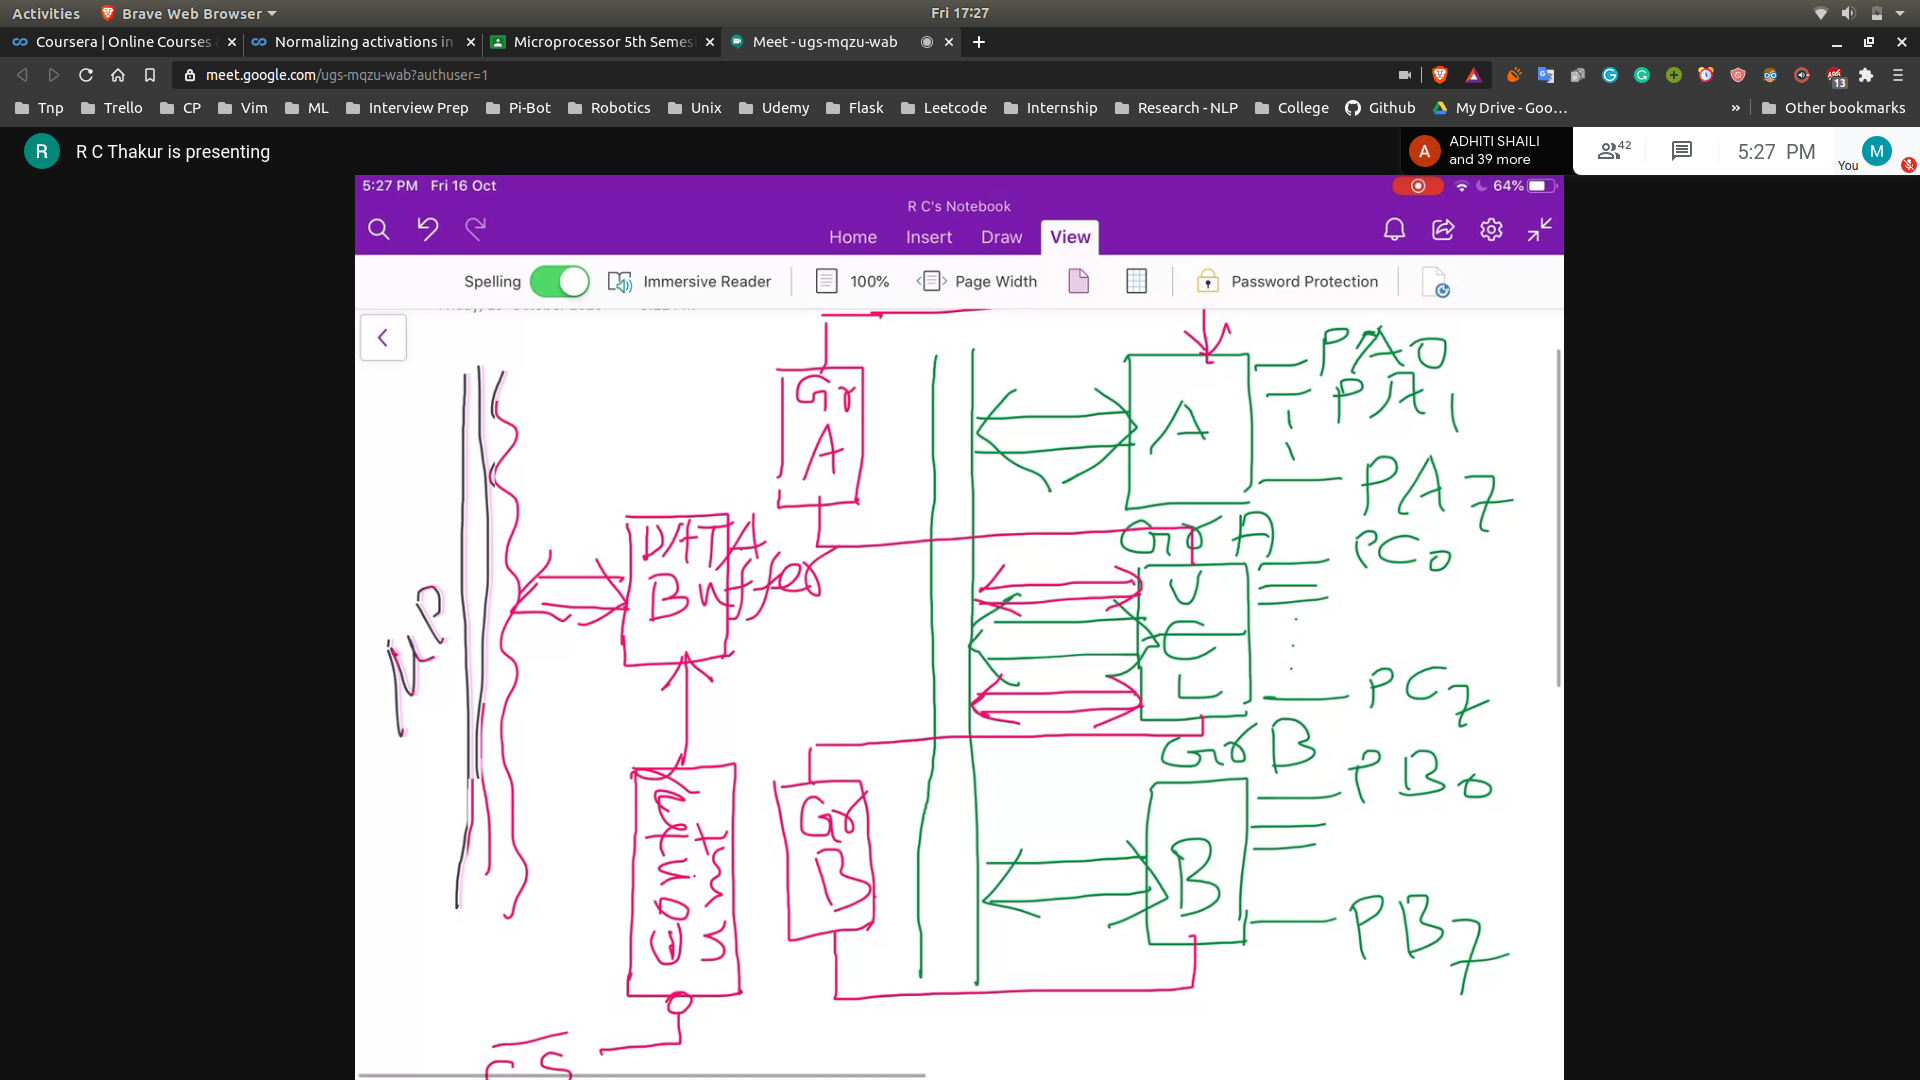 Activities
Brave Web Browser
Fri 17:27
Coursera | Online Courses
Normalizing activations in
Microprocessor 5th Semes
Meet - ugs-mqzu-wab
meet.google.com/ugs-mqzu-wab?authuser=1
13
Tnp
Trello
CP
Vim
ML
Interview Prep
Pi-Bot
Robotics
Unix
Udemy
Flask
Leetcode
Internship
Research - NLP
College
Github
My Drive - Goo...
»
Other bookmarks
R
R C Thakur is presenting
A
ADHITI SHAILI
and 39 more
42
5:27 PM
You
M
5:27 PM Fri 16 Oct
64%
R C's Notebook
Home
Insert
Draw
View
Spelling
Immersive Reader
100%
Page Width
Password Protection
PA0
Gr
A
A
PA1
PA7
DATA
Buffer
Gr A
PC0
U
C
L
μP
PC7
Gr B
PB0
Gr
B
B
PB7
CS